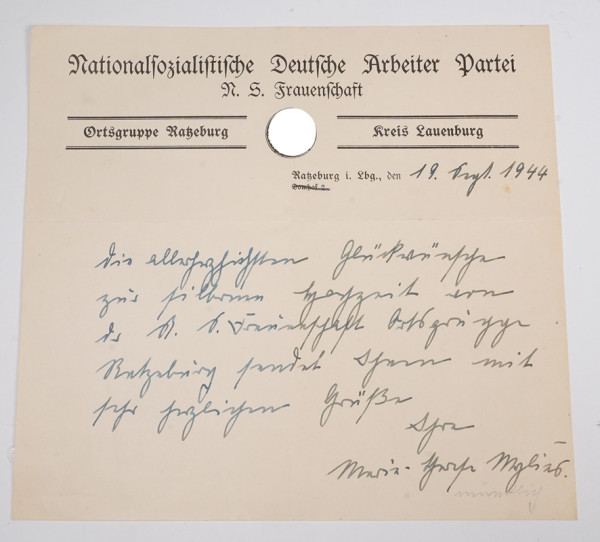 Nationalsozialistische Deutsche Arbeiter Partei
N. S. Frauenschaft
Ortsgruppe Ratzeburg
Kreis Lauenburg
Ratzeburg i. Lbg., den 19. Sept. 1944
Die allerherzlichsten Glückwünsche
zur silbernen Hochzeit von
der N. S. Frauenschaft Ortsgruppe
Ratzeburg sendet Ihnen mit
sehr herzlichen Grüße
Ihre
Marie- Mylius.